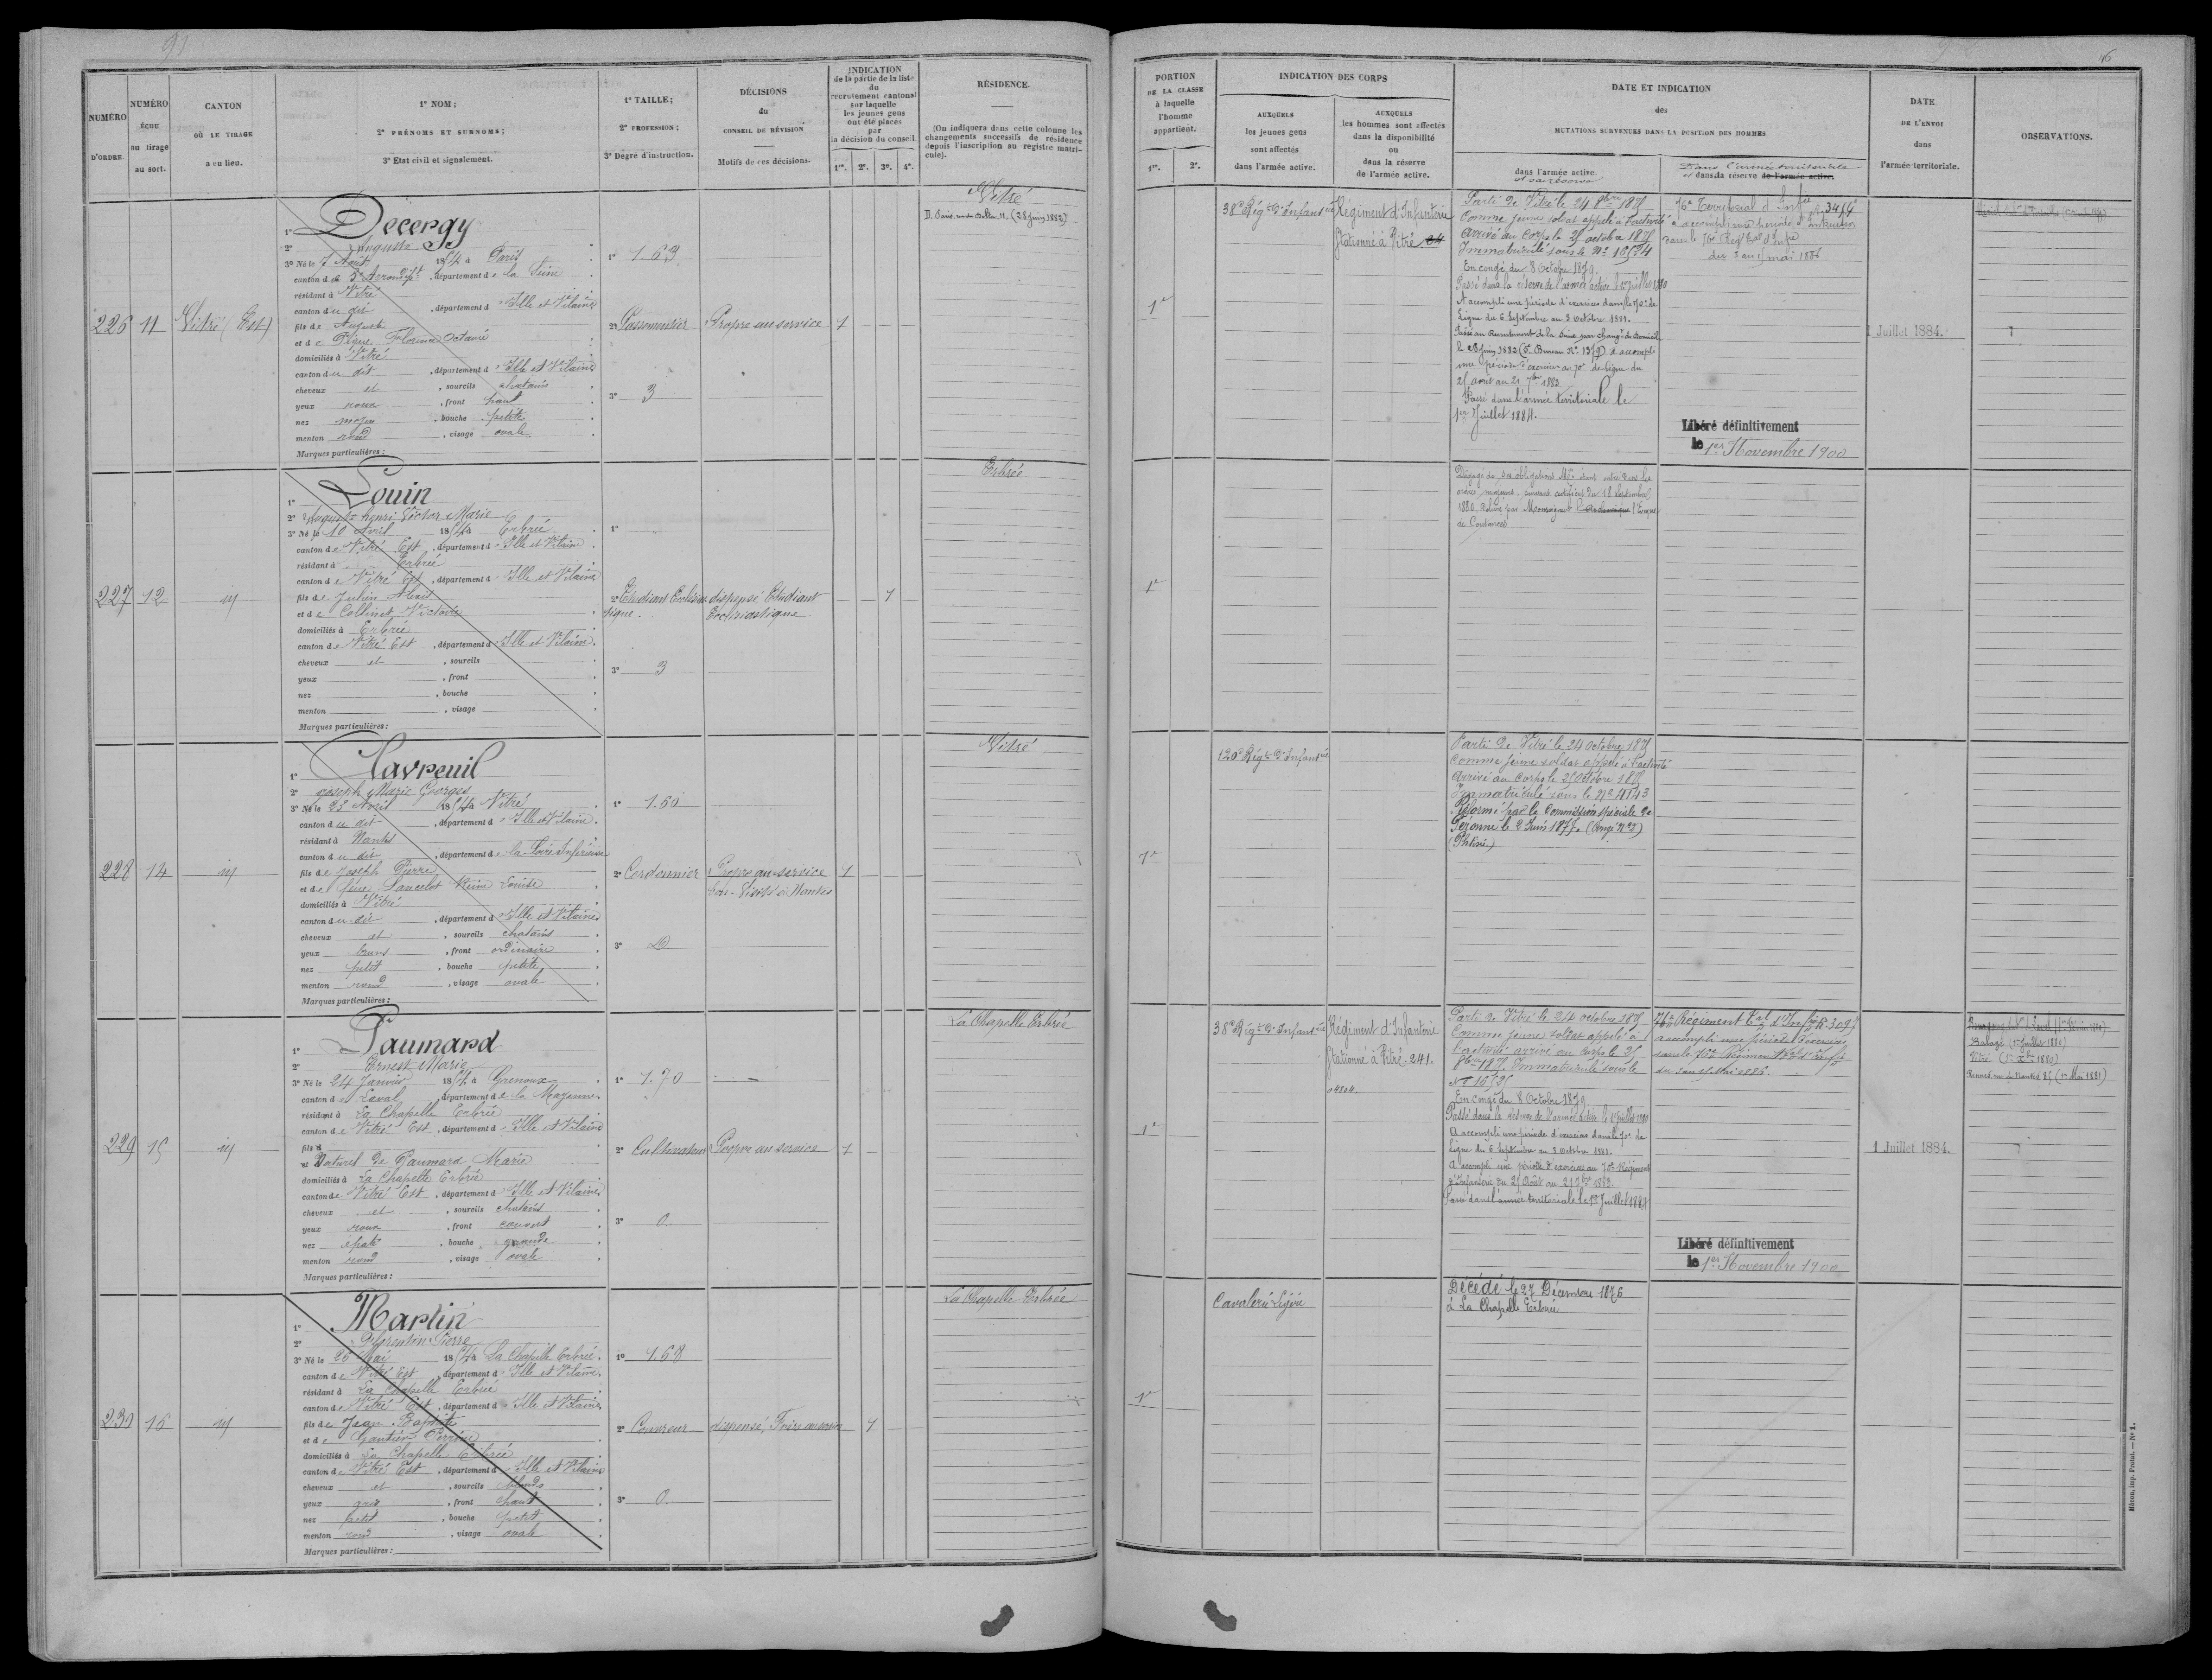 91
NUMÉRO D'ORDRE.
NUMÉRO échu au tirage au sort.
CANTON OÙ LE TIRAGE a eu lieu.
1º NOM;
2º PRÉNOMS ET SURNOMS;
3º Etat civil et signalement.
1º TAILLE;
2º PROFESSION;
3º Degré d'instruction.
DÉCISIONS du CONSEIL DE RÉVISION
Motifs de ces décisions.
INDICATION
de la partie de la liste
du
recrutement cantonal
sur laquelle
les jeunes gens
ont été placés
par
la décision du conseil.
1re. 2e. 3e. 4e.
RÉSIDENCE.
(On indiquera dans cette colonne les
changements successifs de résidence
depuis l'inscription au registre matri-
cule).
226 11 Vitré (Est)
1º Decergy
2º Auguste
3º Né le 7 Août 1854 à Paris
canton de 3e Arrondist, département de la Seine
résidant à Vitré
canton du dit, département d'Ille et Vilaine
fils de Auguste
et de Pigne Florence Octavie
domiciliés à Vitré
canton du dit, département d'Ille et Vilaine
cheveux et, sourcils chatains
yeux roux, front haut
nez moyen, bouche petite
menton rond, visage ovale
Marques particulières:
1º 1.69
2º Passementier
3º 3
Propre au service
1
Vitré
(28 juin 1882)
227 12 id
1º Louin
2º Auguste henri Victor Marie
3º Né le 10 Avril 1854 à Erbrée
canton de Vitré Est, département d'Ille et Vilaine
résidant à Erbrée
canton de Vitré Est, département d'Ille et Vilaine
fils de Julien
et de Collinet Victoire
domiciliés à Erbrée
canton de Vitré Est, département d'Ille et Vilaine.
cheveux et, sourcils
yeux, front
nez, bouche
menton, visage
Marques particulières:
1º
2º Etudiant Ecclésias
tique.
3º 3
dispensé Etudiant
Ecclésiastique
1
Erbrée
228 14 id
1º Havreuil
2º Joseph Marie Georges
3º Né le 23 Avril 1854 à Vitré
canton du dit, département d'Ille et Vilaine.
résidant à Nantes
canton du dit, département de la Loire Inférieure
fils de Joseph Pierre
et de feue Lancelot Reine Louise
domiciliés à Vitré
canton du dit, département d'Ille et Vilaine
cheveux et, sourcils chatains
yeux bruns, front ordinaire
nez petit, bouche petite
menton rond, visage ovale
Marques particulières:
1º 1.60
2º Cordonnier
3º
Propre au service
Visité à Nantes
1
Vitré
229 15 id
1º Paumard
2º Ernest Marie
3º Né le 24 Janvier 1854 à Grenoux
canton de Laval, département de la Mayenne
résidant à La Chapelle Erbrée
canton de Vitré Est, département d'Ille et Vilaine
fils
Naturel de Paumard Marie
domiciliés à La Chapelle Erbrée
canton de Vitré Est, département d'Ille et Vilaine
cheveux et, sourcils chatains
yeux roux, front couvert
nez épaté, bouche grande
menton rond, visage ovale
Marques particulières:
1º 1.70
2º Cultivateur
3º 0
Propre au service
1
La Chapelle Erbrée
230 16 id
1º Martin
2º Florentin Pierre
3º Né le 26 Mai 1854 à La Chapelle Erbrée.
canton de Vitré Est, département d'Ille et Vilaine.
résidant à La Chapelle Erbrée
canton de Vitré Est, département d'Ille et Vilaine
fils de Jean Baptiste
et de Gautier Perrine
domiciliés à La Chapelle Erbrée
canton de Vitré Est, département d'Ille et Vilaine
cheveux et, sourcils blonds
yeux gris, front haut
nez petit, bouche petite
menton rond, visage ovale
Marques particulières:
1º 1.68
2º Couvreur
3º 0
dispensé, Frère au service
1
La Chapelle Erbrée
PORTION
DE LA CLASSE
à laquelle
l'homme
appartient.
1re. 2e.
INDICATION DES CORPS
AUXQUELS
les jeunes gens
sont affectés
dans l'armée active.
AUXQUELS
les hommes sont affectés
dans la disponibilité
ou
dans la réserve
de l'armée active.
DATE ET INDICATION
des
MUTATIONS SURVENUES DANS LA POSITION DES HOMMES
dans l'armée active
et sa réserve
Dans l'armée territoriale
et dans sa réserve de l'armée active.
DATE
DE L'ENVOI
dans
l'armée territoriale.
OBSERVATIONS.
1e
38e Régt d'Infanterie
Régiment d'Infanterie
Stationné à Vitré
Parti de Vitré le 24 8bre 1875
Comme jeune soldat appelé à l'activité
Arrivé au Corps le 25 octobre 1875
Immatriculé sous le Nº 16524
En congé du 8 Octobre 1879.
Passé dans la réserve de l'armée active le 1er juillet 1880
A accompli une période d'exercices dans le 70e de
Ligne du 6 Septembre au 3 octobre 1881.
Passé au Recrutement de la Seine par changt de domicile
le 28 juin 1882 a accompli
une période d'exercices au 70e de ligne du
25 aout au 21 7bre 1883.
Passé dans l'armée territoriale le
1er Juillet 1884.
76e Territorial d'Infie
a accompli une période d'instruction
dans le 76e Régt tal d'Infie
du 3 au 15 mai 1886
Libéré définitivement
le 1er Novembre 1900
1 Juillet 1884.
1e
Dégagé de ses obligations Mres étant entré dans les
ordres majeurs, suivant certificat du 18 Septembre
1880, délivré par Monseigneur l'Evêque
de Coutances
1e
120e Régt d'Infanterie
Parti de Vitré le 24 octobre 1875
Comme jeune soldat appelé à l'activité
Arrivé au Corps le 25 octobre 1875
Immatriculé sous le Nº 4743
Réformé par la Commission spéciale de
Péronne le 2 Juin 1877. (Congé Nº 2)
(Phtisie)
1e
38e Régt d'Infanterie
Régiment d'Infanterie
Stationné à Vitré. 241.
Parti de Vitré le 24 octobre 1875
Comme jeune soldat appelé à
l'activité arrivé au Corps le 25
8bre 1875. Immatriculé sous le
Nº 16525
En congé du 8 Octobre 1879
Passé dans la réserve de l'armée active le 1er juillet 1880
A accompli une période d'exercices dans le 70e de
ligne du 6 Septembre au 3 Octobre 1881.
A accompli une période d'exercices au 70e Régiment
d'Infanterie du 25 Août au 21 7bre 1883.
Passé dans l'armée territoriale le 1er Juillet 1884
76e Régiment tal d'Infie
a accompli une période d'exercices
dans le 76e Régiment tal d'Infie
du 3 au 15 Mai 1886.
Libéré définitivement
le 1er Novembre 1900
1 Juillet 1884.
Balazé (1er Juillet 1880)
Vitré (1er Xbre 1880)
Rennes rue de Nantes 85 (1er Mai 1881)
1e
Cavalerie Légère
Décédé le 27 Décembre 1876
à La Chapelle Erbrée